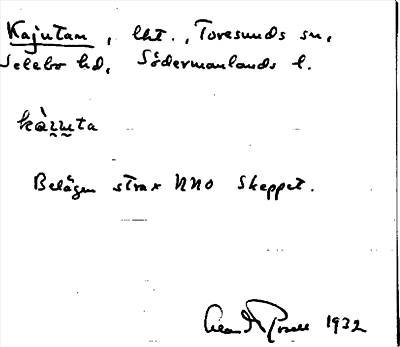 Kajutan, lht., Toresunds sn,
Selebo hd, Södermanlands l.
Belägen strax NNO Skeppet.
1932